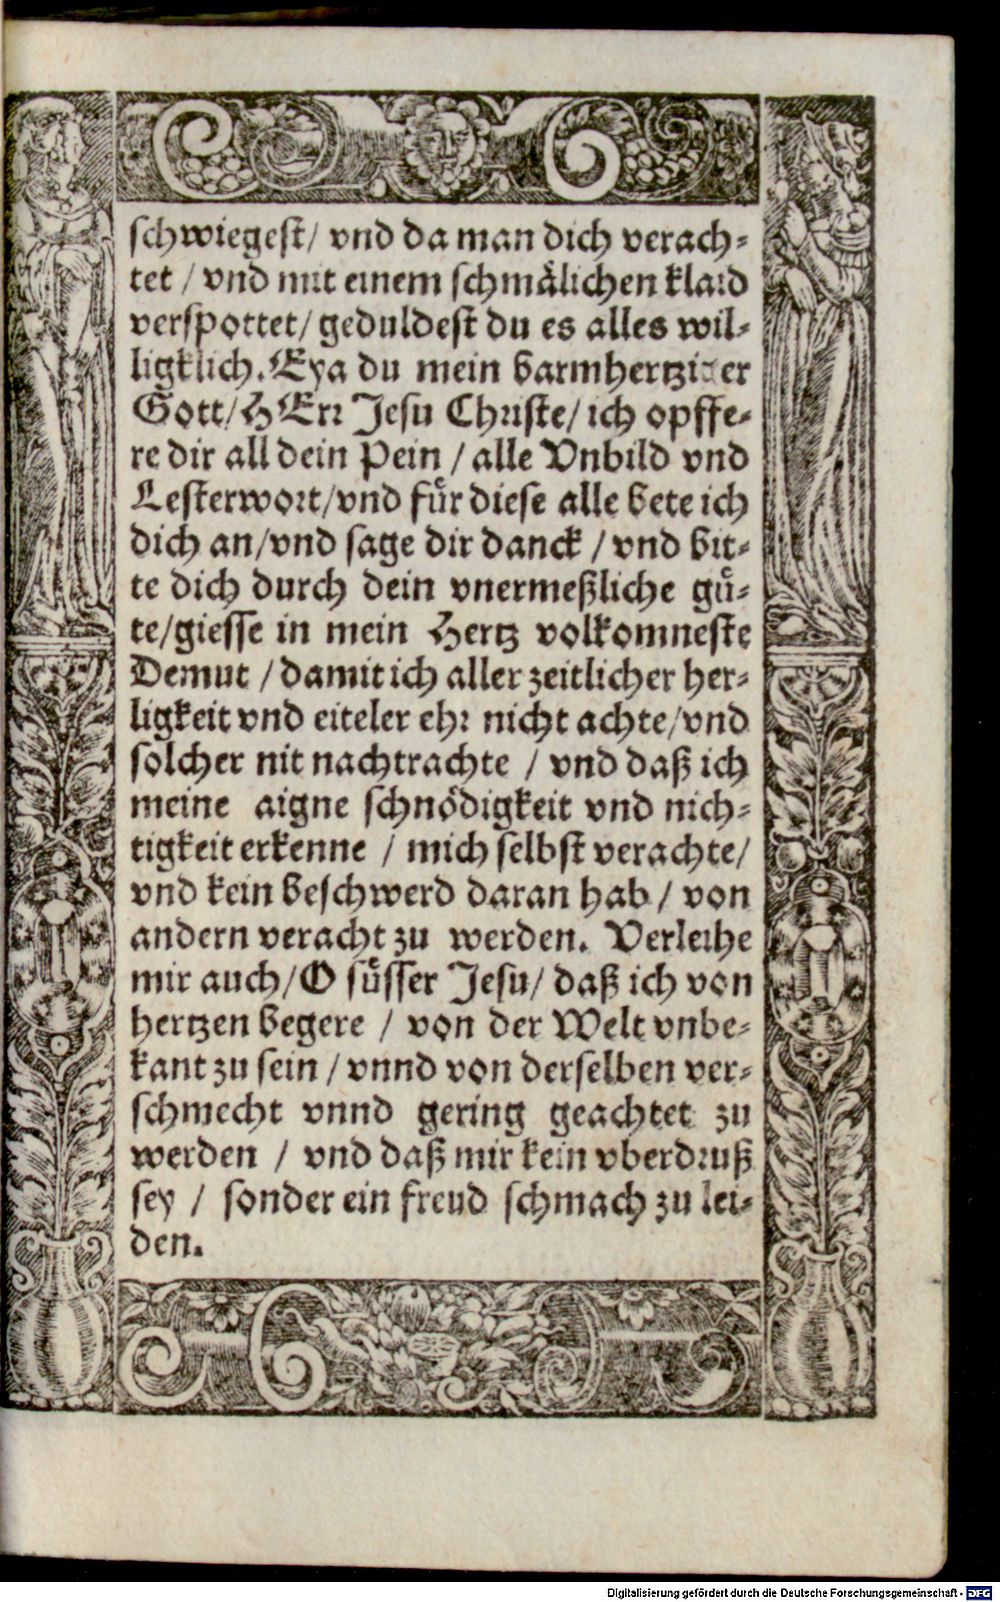 schwiegest/ vnd da man dich verach⸗
tet / vnd mit einem schmälichen klaid
verspottet/ geduldest du es alles wil⸗
ligklich. Eya du mein barmhertziger
Gott/ HErr Jesu Christe/ ich opffe⸗
re dir all dein Pein / alle Vnbild vnd
Lesterwort/vnd fuͤr diese alle bete ich
dich an/vnd sage dir danck / vnd bit⸗
te dich durch dein vnermeßliche guͤ⸗
te/giesse in mein Hertz volkomneste
Demut / damit ich aller zeitlicher her⸗
ligkeit vnd eiteler ehr nicht achte/vnd
solcher nit nachtrachte / vnd daß ich
meine aigne schnoͤdigkeit vnd nich⸗
tigkeit erkenne / mich selbst verachte/
vnd kein beschwerd daran hab / von
andern veracht zu werden. Verleihe
mir auch/O suͤsser Jesu/ daß ich von
hertzen begere / von der Welt vnbe⸗
kant zu sein / vnnd von derselben ver⸗
schmecht vnnd gering geachtet zu
werden / vnd daß mir kein vberdruß
sey / sonder ein freud schmach zu lei⸗
den.
Digitalisierung gefördert durch die Deutsche Forschungsgemeinschaft - DFG